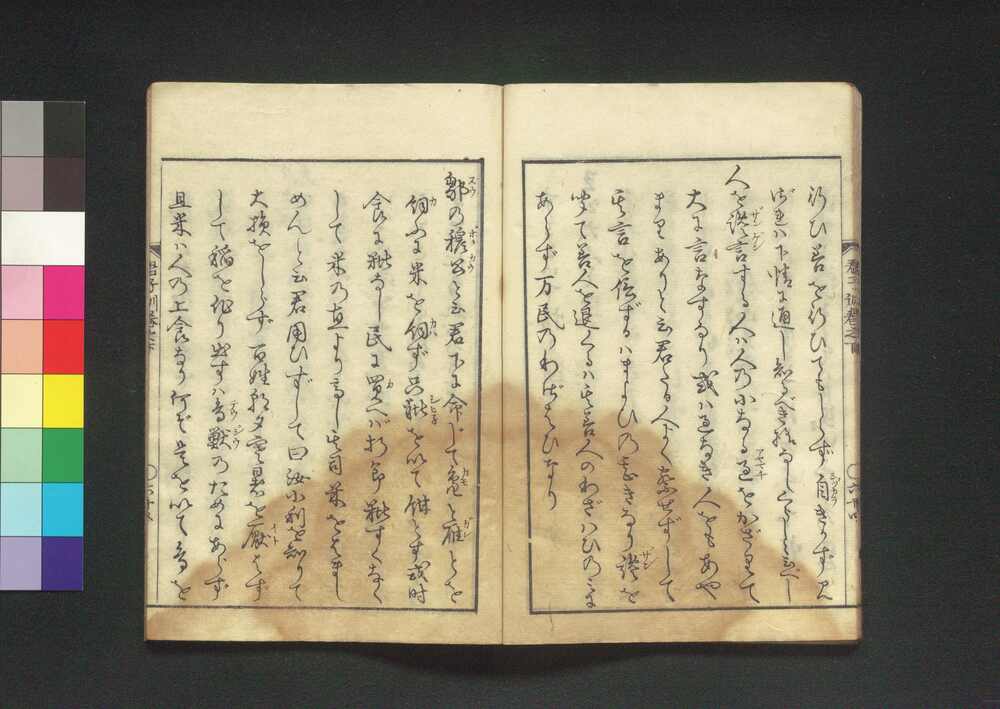 行ひ善を行ひてもしらず自きかず見
ざれハ下情に通し知るべき様なしくらしと云べし
人を讒言する人ハ人の小なる過をかざり立て
大に言なすなり或ハ過なき人をもあや
まりありと云君たる人よく察せずして
其言を信ずるハまよひの甚きなり讒を
聴て善人を退くるハ其善人のわざハひのミに
あらず万民のわざはひなり
鄒の穆公と云君下に命じて鳧と雁とを
飼ふに米を飼ず只粃を以て飼とす或時
倉に粃なし民に買へバ折節粃すくなく
して米の直より高し其司米をはまし
めんと云君用ひずして曰汝小利を知りて
大損をしらず百姓朝夕寒暑を厭はず
して稲を作り出すハ鳥獣のためにあらず
且米ハ人の上食なり何ぞ是を以て鳥を
君子訓巻之下